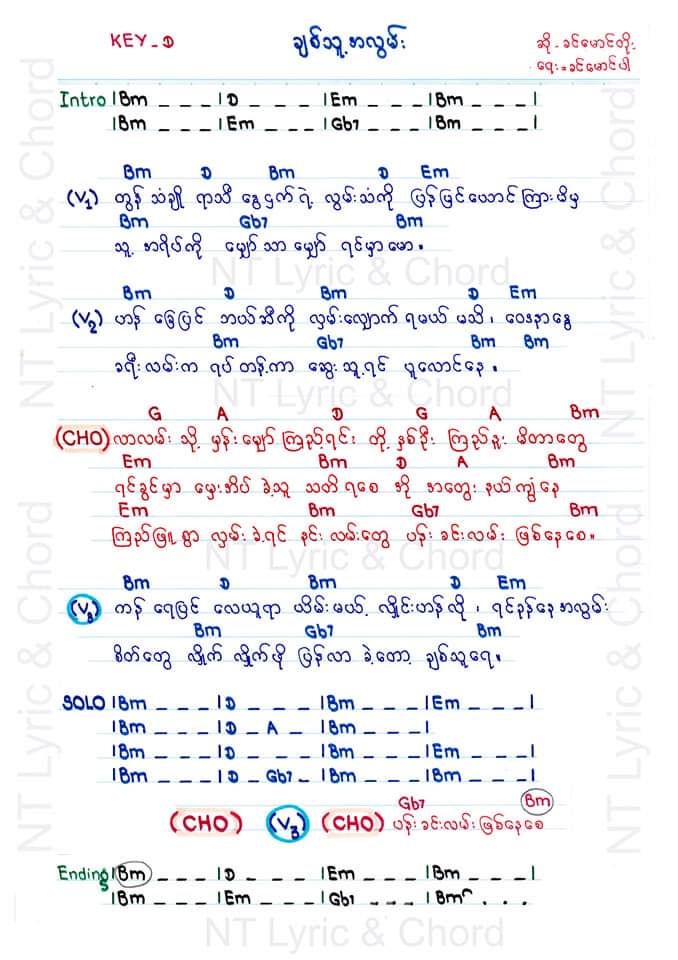 KEY - D
ချစ်သူ့အလွမ်း
ဆို - ခင်မောင်တိုး
ရေး - ခင်မောင်ပါ
Intro |Bm _ _ _ |D _ _ _ |Em _ _ _ |Bm _ _ _ |
|Bm _ _ _ |Em _ _ _ |Gb7 _ _ _ |Bm _ _ _ |
Bm D Bm D Em
(V1) တွန် သံချို ရာသီ နွေဌက်ရဲ့ လွမ်းသံကို ပြန်မြင်ယောင်ကြားမိမှ
Bm Gb7 Bm
သူ့ အရိပ်ကို မျှော် သာ မျှော် ရင်မှာမော ။
Bm D Bm D Em
(V2) ဟန် မြေပြင် ဘယ်ဆီကို လှမ်းလျှောက် ရမယ် မသိ ၊ ဝေဒနာနွေ
Bm Gb7 Bm Bm
ခရီးလမ်းက ရပ်တန့်ကာ ဆွေးသူ့ရင် ပူလောင်နေ ။
G A D G A Bm
(CHO) လာလမ်း သို့ မှန်းမျှော် ကြည့်ရင်း တို့ နှစ်ဦး ကြည်နူး မိတာတွေ
Em Bm D A Bm
ရင်ခွင်မှာ မှေးအိပ် ခဲ့သူ သတိရစေ အို အတွေး နယ်ကျွံနေ
Em Bm Gb7 Bm
ကြည်ဖြူ စွာ လှမ်းခဲ့ရင် နင်းလမ်းတွေ ပန်းခင်းလမ်း ဖြစ်နေစေ ။
Bm D Bm D Em
(V3) ကန် ရေပြင် လေယူရာ ယိမ်းမယ့် လှိုင်းဟန်လို ၊ ရင်ခုန်နေအလွမ်း
Bm Gb7 Bm
စိတ်တွေ လှိုက် လှိုက်ဖို ပြန်လာ ခဲ့တော့ ချစ်သူရေ ။
SOLO |Bm _ _ _ |D _ _ _ |Bm _ _ _ |Em _ _ _ |
|Bm _ _ _ |D _ A _ |Bm _ _ _ |
|Bm _ _ _ |D _ _ _ |Bm _ _ _ |Em _ _ _ |
|Bm _ _ _ |D _ Gb7 _ |Bm _ _ _ |Bm _ _ _ |
Gb7 Bm
(CHO) (V3) (CHO) ပန်းခင်းလမ်းဖြစ်နေစေ
Ending |Bm _ _ _ |D _ _ _ |Em _ _ _ |Bm _ _ _ |
|Bm _ _ _ |Em _ _ _ |Gb7 _ _ _ |Bm . . .
NT Lyric & Chord
NT Lyric & Chord
NT Lyric & Chord
NT Lyric & Chord
NT Lyric & Chord
NT Lyric & Chord
NT Lyric & Chord
NT Lyric & Chord